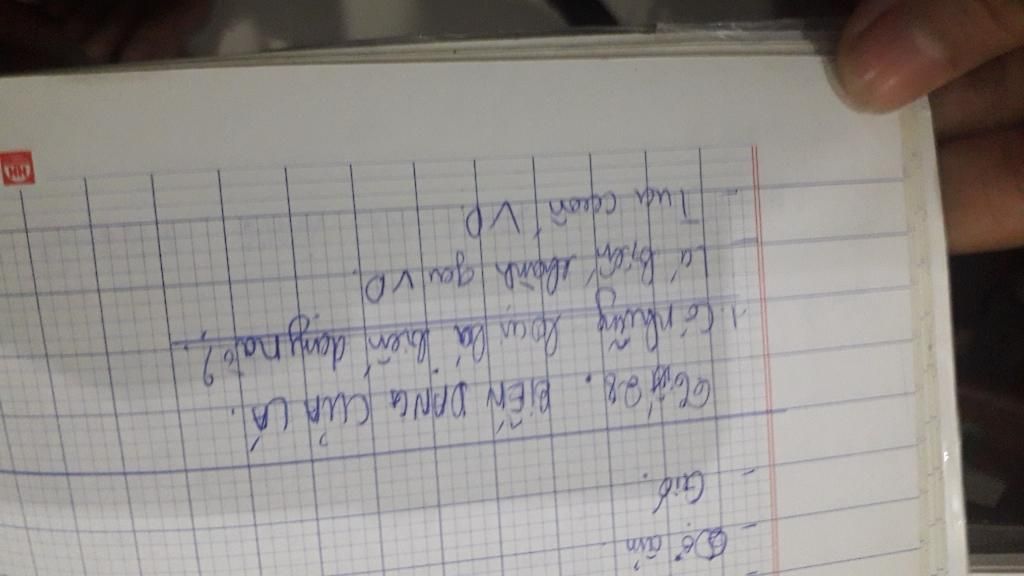 - Độ ẩm
- Gió.
Tiết 28. BIẾN DẠNG CỦA LÁ.
1. Có những loại lá biến dạng nào?
Lá biến thành gai VD.
- Tua cuốn VD
HH